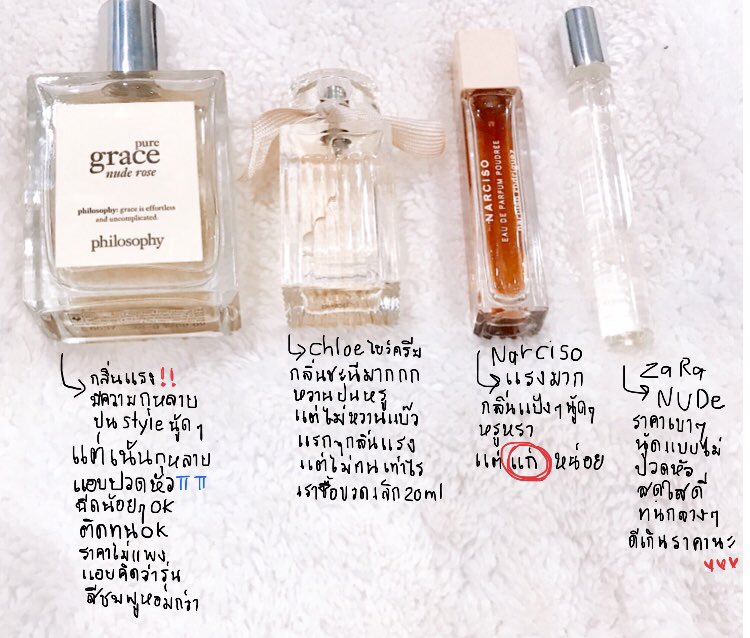 pure
grace
nude rose
philosophy: grace is effortless
and uncomplicated.
philosophy
NARCISO
EAU DE PARFUM POUDRÉE
narciso rodriguez
กลิ่นแรง!!
มีความกุหลาบ
ปน style นู้ดๆ
แต่เน้นกุหลาบ
แอบปวดหัว TT
ฉีดน้อยๆ OK
ติดทน OK
ราคาไม่แพง
แอบคิดว่ารุ่น
สีชมพูหอมกว่า
chloe โบว์ครีม
กลิ่นชะนีมากกก
หวานปนหรู
แต่ไม่หวานแบ๊ว
แรกๆกลิ่นแรง
แต่ไม่ทนเท่าไร
เราซื้อขวดเล็ก 20ml
Narciso
แรงมาก
กลิ่นแป้งๆนู้ดๆ
หรูหรา
แต่ แก่ หน่อย
ZaRa
NUDe
ราคาเบาๆ
นู้ดแบบไม่
ปวดหัว
สดใสดี
ทนกลางๆ
ดีเกินราคานะ